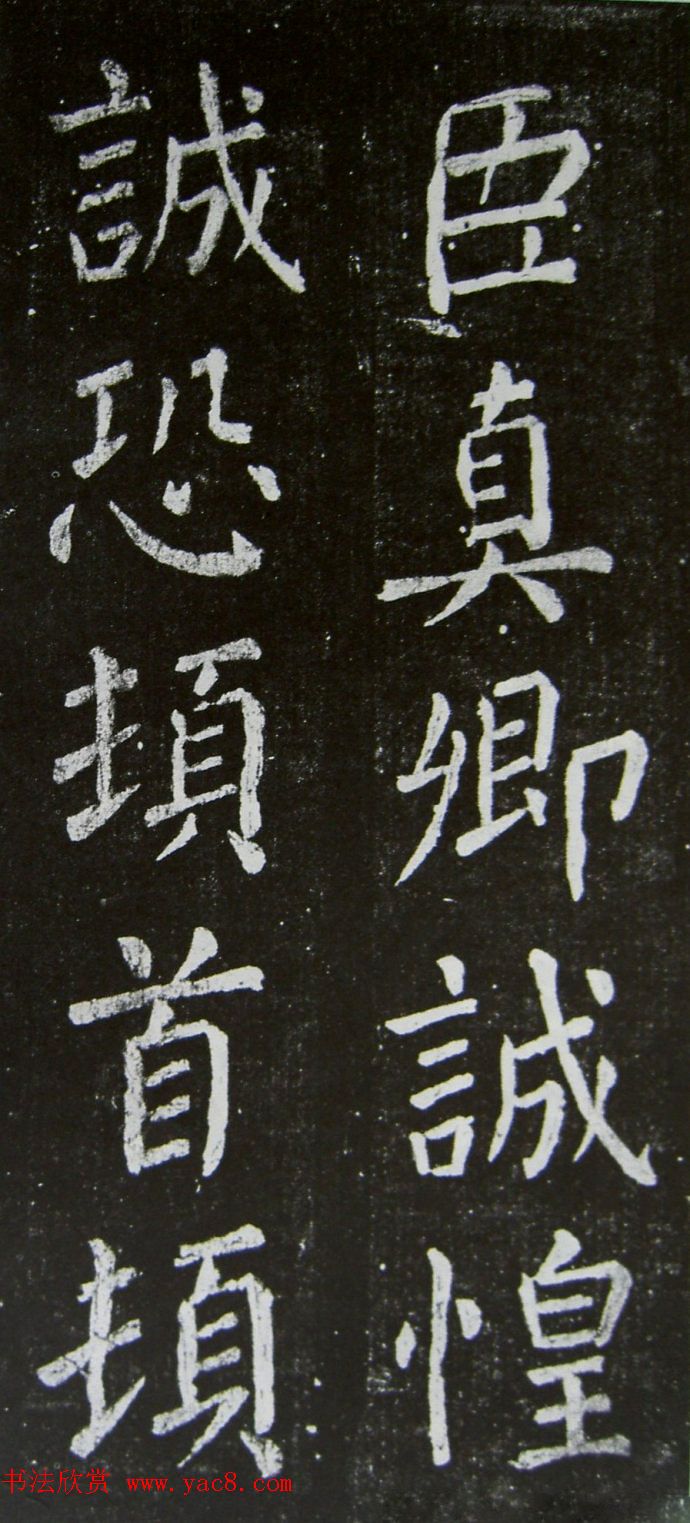 臣真卿誠惶
誠恐頓首頓
书法欣赏 www.yac8.com